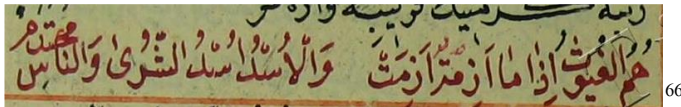 هُمُ الْغُيُوثُ اِذَا مَا اَزْمَةٌ اَزَمَتْ وَالْاُسْدُ اُسْدُ الشَّرٰى وَالنَّاسُ محتدم
66